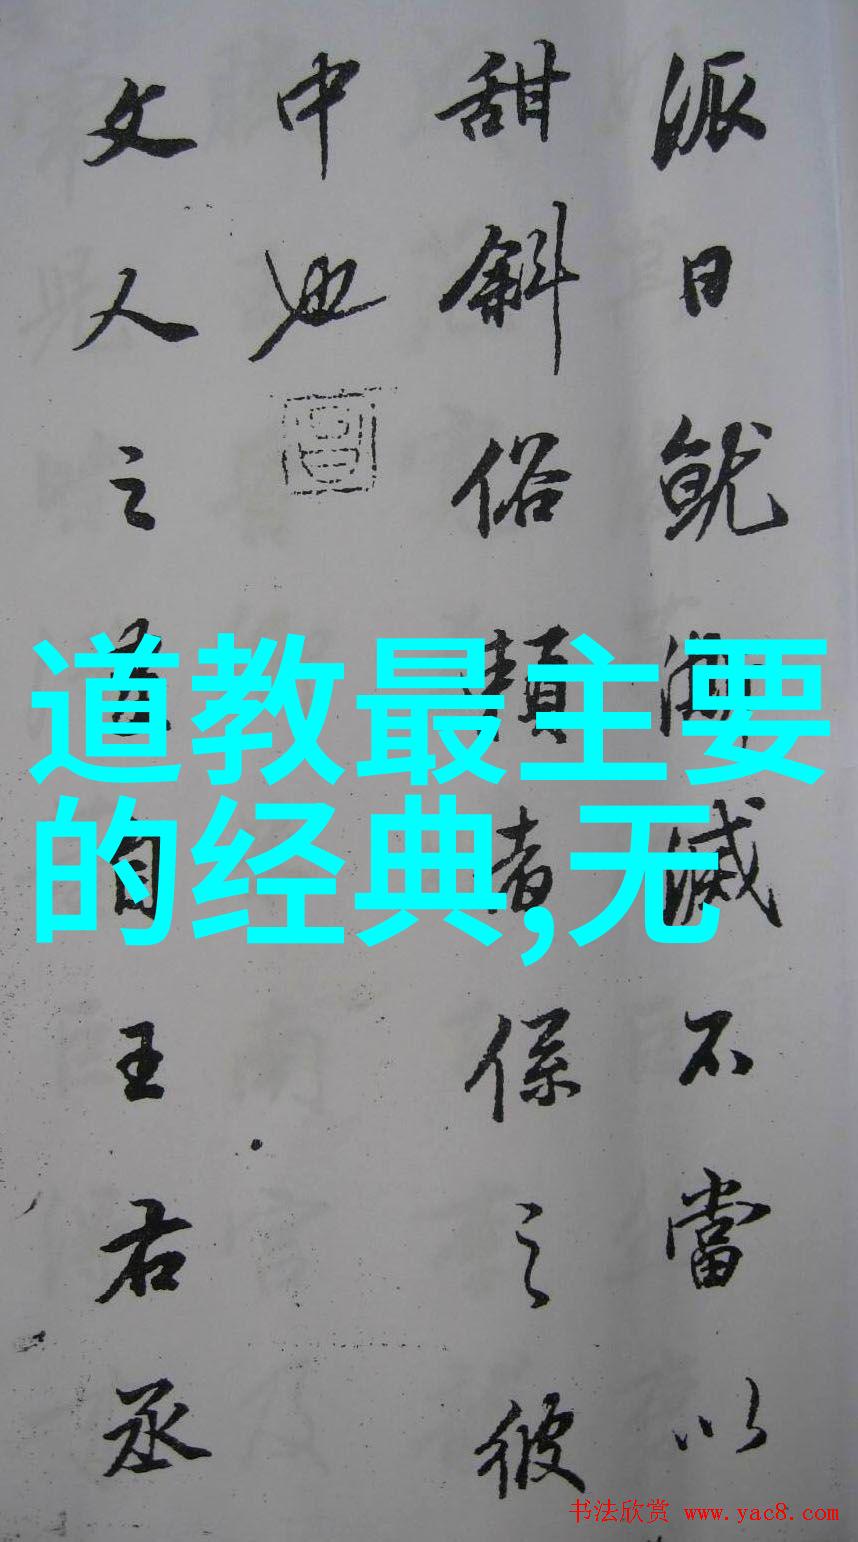 派日就澌滅不當以
甜斜俗頼者係之彼
中也
文人之畫自王右丞
道教最主要
的经典,无
书法欣赏 www.yac8.com